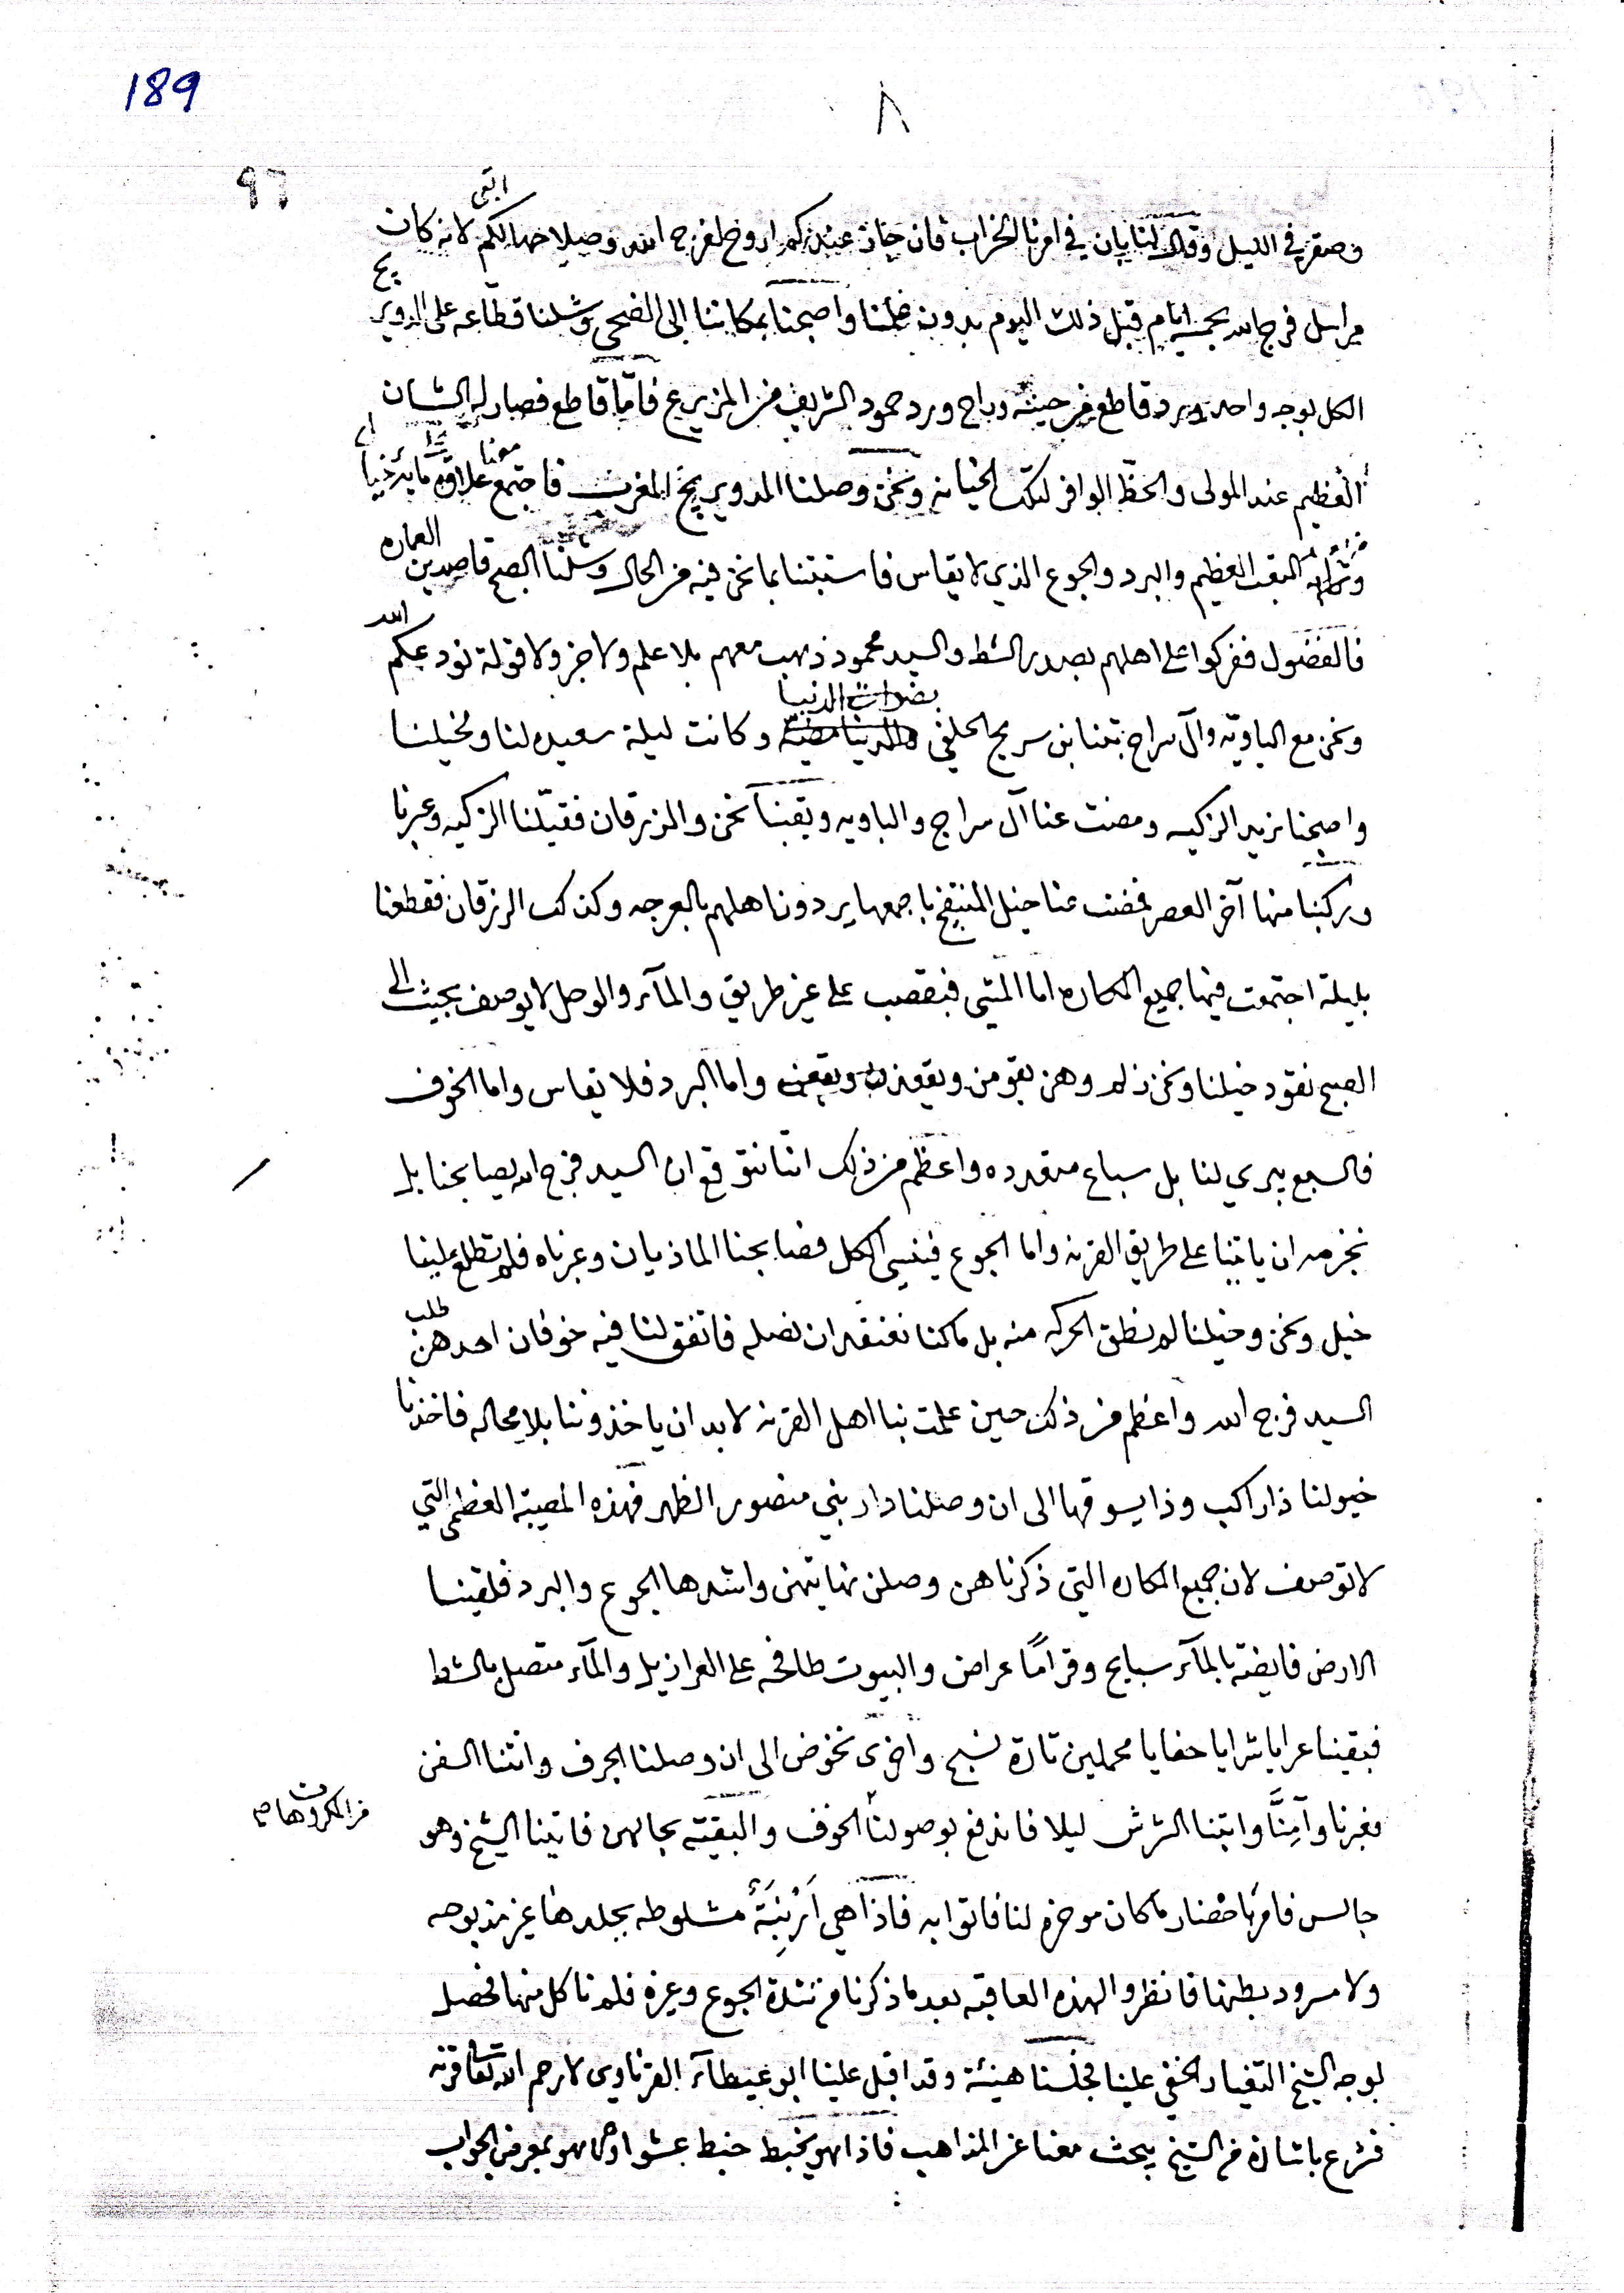 189
٨
٩٦
وصقر في الليل وقال لنا بان في امرنا الخراب فان جاز عندكم اروح لفرج الله وصلاحها لكم لانه كان
مراسل فرج الله بخمسة ايام قبل ذلك اليوم بدون علمنا واصبحنا بمكاننا الى الضحى وشلنا قطّاعه على الدوير
الكل بوجه واحد وبرد قاطع من حيثه وراح ورد حمود الشريف من المزيرع فامّا قاطع فصار له الشان
العظيم عند المولى والحظّ الوافر لتلك الخيانه ونحن وصلنا المدوير المغرب فاجتمع معنا علاوة ما بنا
التعب العظيم والبرد والجوع الذي لا يقاس فاستبتنا بما نحن فيه من الحال وشلنا الصبح قاصدين العماره
فالفضول ففركوا على اهلهم بصدر الشط والسيد محمود ذهب معهم بلا علم ولا خبر ولا قولة نودعكم الله
ونحن مع الباويّه وآل سراج بتنا بن سريح الحلفي بضرات الدنيا وكانت ليلة سعيده لنا ولخيلنا
واصبحنا نريد الزكيه ومضت عنا آل سراج والباويه وبقينا نحن والزرقان فقيّلنا الزكيه وعبرنا
وركبنا منها آخر العصر فمضت عنا خيل المنتفج باجمعها يردون اهلهم بالعرجه وكذلك الزرقان فقطعنا
بليلة اجتمعت فيها جميع المكاره اما المشي فبقصب على غير طريق والمآء والوحل لا يوصف بحيث الى
الصبح نقود خيلنا ونحن زلم وهن يقومن ويقعن واما البرد فلا يقاس واما الخوف
فالسبع يبري لنا بل سباع متعدده واعظم من ذلك انّا نتوقع ان السيد فرج الله يصابحنا بل
نجزمه ان ياتينا على طريق القرنه واما الجوع فينسي الكل فصابحنا الماذيان وعبرناه فلم تطلع علينا
خيل ونحن وخيلنا لم نطق الحركه منه بل ما كنا نعتقد ان نصله فاتفق لنا فيه خوفان احدهن طلب
السيد فرج الله واعظم من ذلك حين علمت بنا اهل القرنه لا بد ان ياخذوننا بلا محاله فاخذنا
خيولنا ذا راكب وذا يسوقها الى ان وصلنا دار بني منصور الظهر فهذه المصيبة العظمى التي
لا توصف لان جميع المكاره التي ذكرناهن وصلن نهايتهن واشدها الجوع والبرد فلقينا
الارض فايضة بالمآء سبايح وقراماً عراض والبيوت طافحه على العرازيل والمآء متصل بالشط
فبقينا عرايا شرايا حفايا محملين تارة نسبح واخرى نخوض الى ان وصلنا الجرف واتتنا السفن
فعبرنا وآمِنَّا واتينا الشرش ليلا فاندفع بوصولنا الخوف والبقيّه بحالهن فاتينا الشيخ وهو
من المكروهات
جالس فامر باحضار ما كان موخره لنا فاتوا به فاذا هي اَرْنِبَةٌ مشلوطه بجلدها غير مذبوحه
ولا مسرود بطنها فانظروا الهذه العاقبه بعد ما ذكرنا من شدة الجوع وغيره فلم ناكل منها فحصل
لوجه الشيخ التغيار الخفي علينا فجلسنا هنيئة وقد اقبل علينا ابو غيطآء القرناوي لا رحم الله تعا قرنه
فشرع باشارة من الشيخ يبحث معنا عن المذاهب فاذا هو يخبط خبط عشوا وهو بمعرض الجواب